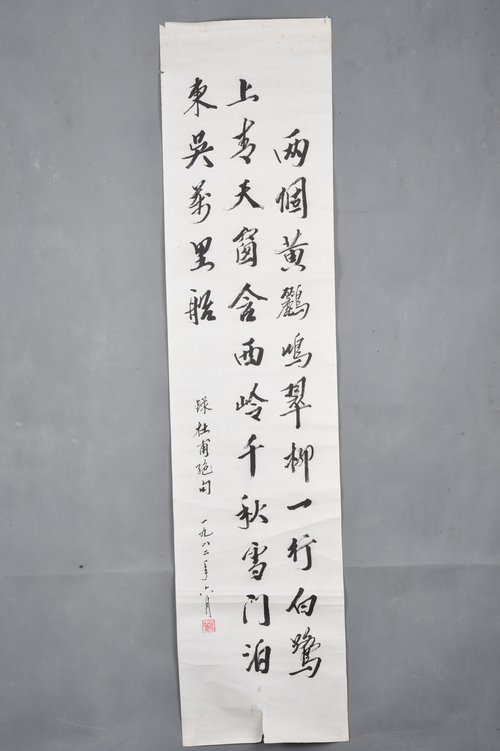 两個黄鸝鳴翠柳一行白鷺
上青天窗含西岭千秋雪門泊
東吳萬里船
録杜甫絶句
一九八二年六月